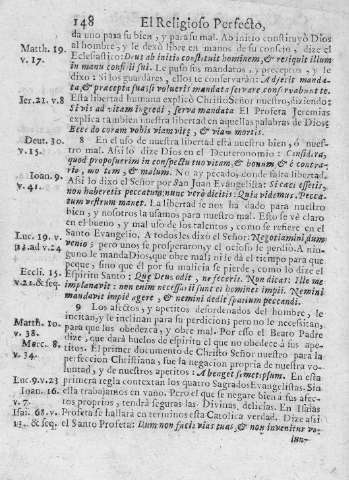 148 El Religioso Perfecto,
da uno para su bien, y para su mal. Ab initio constituyò Dios
Matth. 19. al hombre, y le dexò libre en manos de su consejo, dize el
v. 17. Eclesiastic: Deus ab initio constituit hominem, & reliquit illum
in manu consilii sui. Le puso sus mandatos, y preceptos, y le
dixo: Si los guardares, ellos te conservaràn: Adjecit manda-
ta, & præcepta sua si volueris mandata servare conservabunt te.
Ier. 21. v. 8 Esta libertad humana explicò Christo Señor nuestro, diziendo:
Si vis ad vitam ingredi, serva mandata. El Profeta Jeremias
explica tambien nuestra libertad en aquellas palabras de Dios:
Ecce do coram vobis viam vitæ, & viam mortis.
Deut. 30. 8 En el uso de nuestra libertad està nuestro bien, ò nues-
v. 15. tro mal. Assi lo dize Dios en el Deuteronomio: Considera,
quod proposuerim in conspectu tuo vitam, & bonum, & è contra-
Ioan. 9. rio, mortem, & malum. No ay pecado, donde falta libertad.
v. 41. Assi lo dixo el Señor por San Juan Evangelista: Si cæci essetis,
non haberetis peccatum; nunc verò dicitis: Quia videmus. Pecca-
tum vestrum manet. La libertad se nos ha dado para nuestro
bien, y nosotros la usamos para nuestro mal. Esto se vè claro
en el bueno, y mal uso de los talentos, como se refiere en el
Luc. 19. v. Santo Evangelio. A todos les dixo el Señor: Negotiamini dum
13. ad 24. venio; pero unos se prosperaron, y el ocioso le perdiò. A nin-
guno le manda Dios, que obre mal; ni le dà el tiempo para que
peque; sino que èl por su malicia se pierde, como lo dize el
Eccli. 15. Espiritu Santo: Quæ Deus odit, ne feceris. Non dicas: Ille me
v. 21. & seq. implanavit: non enim necessarii sunt ei homines impii. Nemini
mandavit impiè agere, & nemini dedit spatium peccandi.
9 Los afectos, y apetitos desordenados del hombre, le
Matth. 10. incitan, y le inclinan para su perdicion; pero no le necessitan,
v. 38. para que los obedezca, y obre mal. Por esso el Beato Padre
Marc. 8. dize, que darà huelos de espiritu el que no obedece à sus ape-
v. 34. titos. El primer documento de Christo Señor nuestro para la
perfeccion Christiana, fue la negacion propria de nuestra vo-
luntad, y de nuestros apetitos: Abneget semetipsum. En esta
Luc. 9. v. 23 primera regla contextan los quatro Sagrados Evangelistas. Sin
Ioan. 16. ella trabajamos en vano. Pero el que se negare bien à sus afec-
v. 7. tos proprios, tendrà seguras las Divinas, delicias. En Isaias
Isai. 68. v. Profeta se hallarà en terminos esta Catolica verdad. Dize assi
13. & seq. el Santo Profeta: Dum non facis vias tuas, & non invenitur vo-
lun-